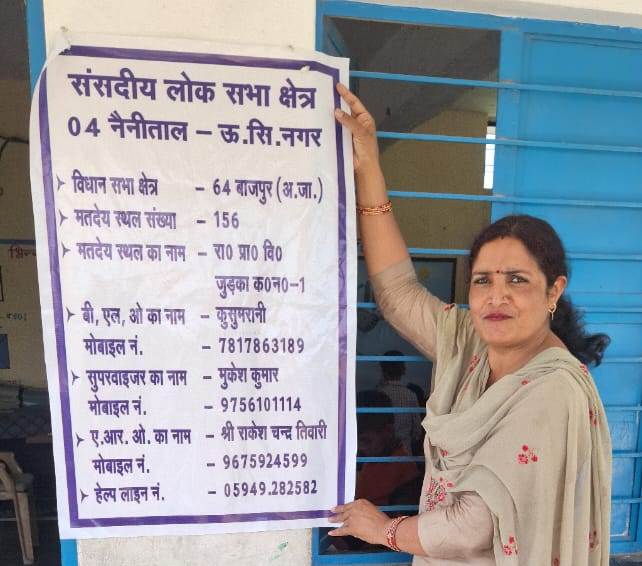 संसदीय लोक सभा क्षेत्र
04 नैनीताल – ऊ.सि.नगर
विधान सभा क्षेत्र – 64 बाजपुर (अ.जा.)
मतदेय स्थल संख्या – 156
मतदेय स्थल का नाम – रा0 प्रा0 वि0
जुड़का क0न0-1
बी, एल, ओ का नाम – कुसुमरानी
मोबाइल नं. – 7817863189
सुपरवाइजर का नाम – मुकेश कुमार
मोबाइल नं. – 9756101114
ए.आर. ओ. का नाम – श्री राकेश चन्द्र तिवारी
मोबाइल नं. – 9675924599
हेल्प लाइन नं. – 05949.282582